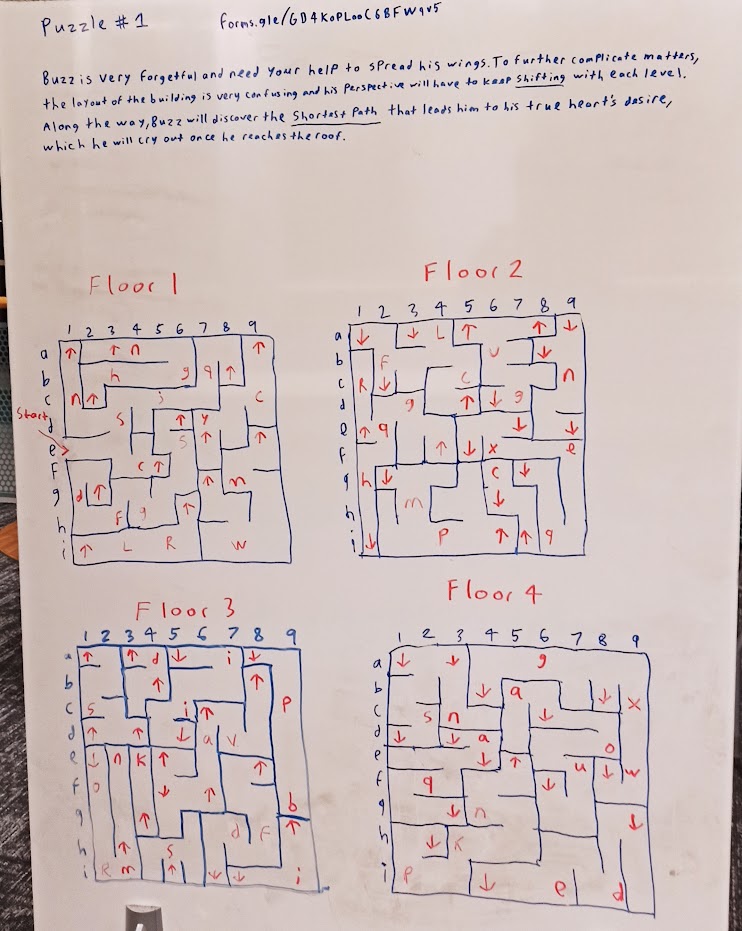 Puzzle #1
forms.gle/GD4KoPLooC6BFW9v5
Buzz is very forgetful and need your help to spread his wings. To further complicate matters,
the layout of the building is very confusing and his perspective will have to keep shifting with each level.
Along the way, Buzz will discover the Shortest Path that leads him to his true heart's desire,
which he will cry out once he reaches the roof.
Floor 1
1 2 3 4 5 6 7 8 9
a ↑ ↑ n ↑
b h g q ↑
c n ↑ i c
d s ↑ y
Start
e s ↑ ↑
f c ↑
g d ↑ ↑ n
h f g ↑
i ↑ L R w
Floor 2
1 2 3 4 5 6 7 8 9
a ↓ ↓ L ↑ ↑ ↓
b F u ↓
c R ↓ c n
d g ↑ ↓ g
e ↑ q ↓ ↓
f ↑ ↓ x e
g h ↓ c ↓
h m ↓
i ↓ P ↑ ↑ q
Floor 3
1 2 3 4 5 6 7 8 9
a ↑ ↑ d ↓ i ↓
b ↑ ↑
c s i ↑ P
d ↑ ↑ ↓ a v
e ↓ n k ↑ ↑
f o ↓ ↑ b
g ↑ d F ↑
h ↑ s
i R m ↑ ↓ ↓ i
Floor 4
1 2 3 4 5 6 7 8 9
a ↓ ↓ g
b ↓ a ↓ x
c s n ↓
d ↓ ↓ a o
e ↓ ↑ u ↓ w
f q ↓
g ↓ n ↓
h ↓ k
i P ↓ e d